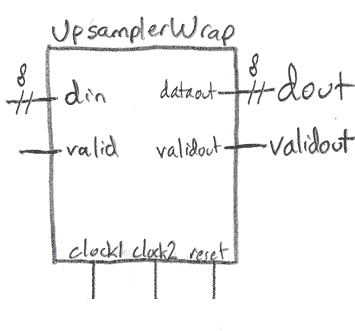 UpsamplerWrap
8
din
dataout
8
dout
valid
validout
validout
clock1 clock2 reset